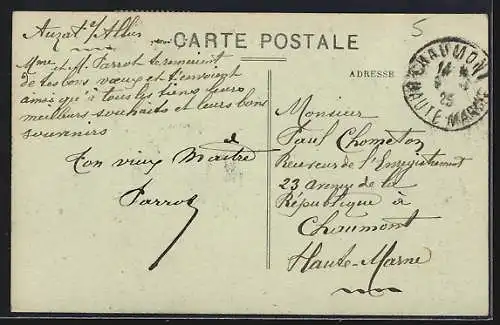 Auzat s/Allier
5
CARTE POSTALE
ADRESSE
CHAUMONT
HAUTE-MARNE
25
Mme et M. Parrot te remercient
de tes bons vœux et t'envoient
ainsi qu'à tous les tiens leurs
meilleurs souhaits et leurs bons
souvenirs
Ton vieux Maître
Parrot
Monsieur
Paul Chometon
Receveur de l'Enregistrement
23 avenue de la
République à
Chaumont
Haute-Marne